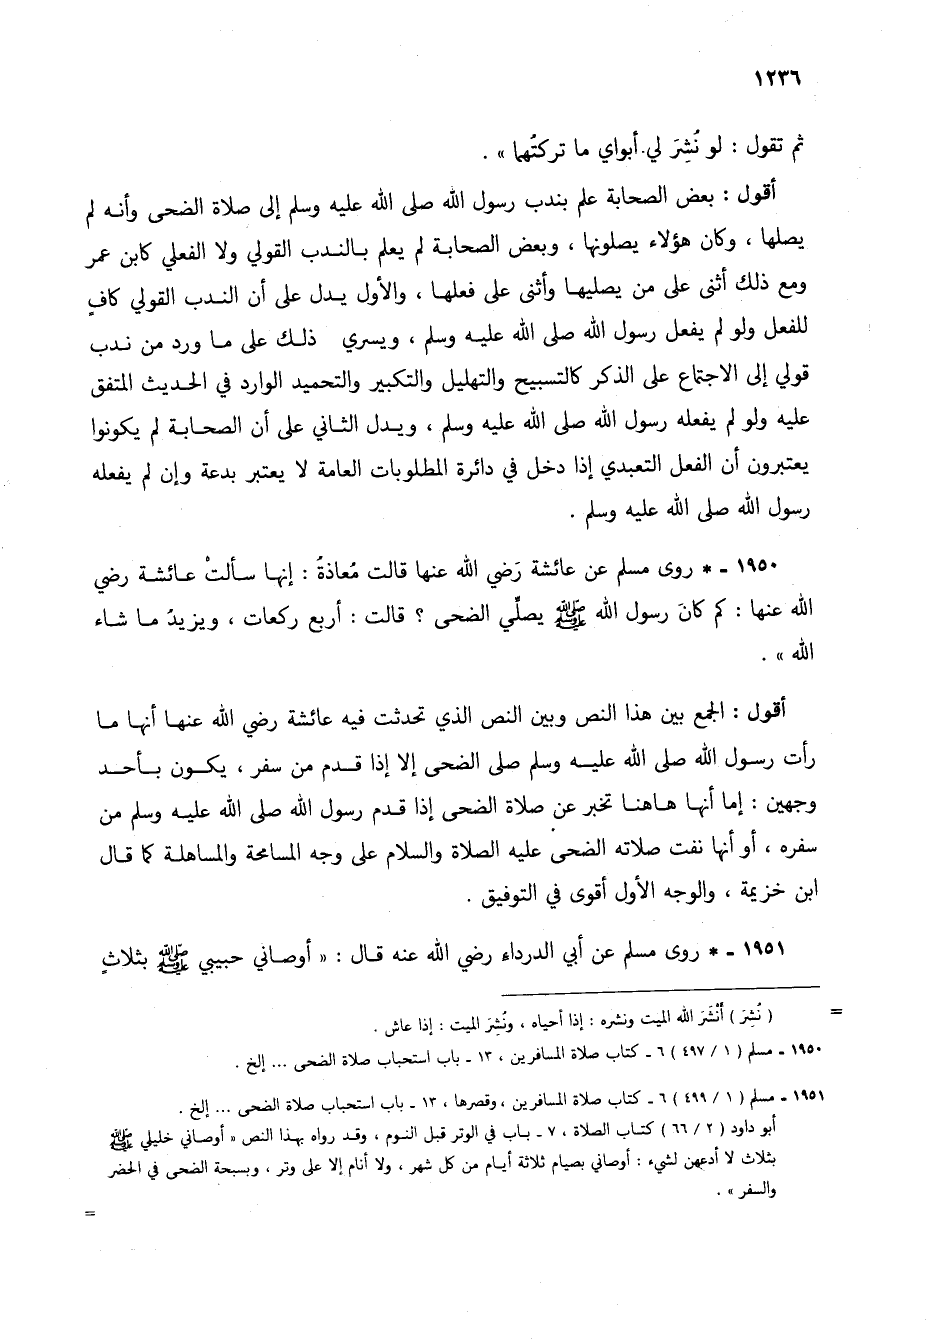 ١٢٣٦
ثم تقول : لو نُشِرَ لي أبواي ما تركتُها » .
أقول : بعض الصحابة علم بندب رسول الله صلى الله عليه وسلم إلى صلاة الضحى وأنه لم
يصلها ، وكان هؤلاء يصلونها ، وبعض الصحابة لم يعلم بالندب القولي ولا الفعلي كابن عمر
ومع ذلك أثنى على من يصليها وأثنى على فعلها ، والأول يدل على أن الندب القولي كافٍ
للفعل ولو لم يفعل رسول الله صلى الله عليه وسلم ، ويسري ذلك على ما ورد من ندب
قولي إلى الاجتماع على الذكر كالتسبيح والتهليل والتكبير والتحميد الوارد في الحديث المتفق
عليه ولو لم يفعله رسول الله صلى الله عليه وسلم ، ويدل الثاني على أن الصحابة لم يكونوا
يعتبرون أن الفعل التعبدي إذا دخل في دائرة المطلوبات العامة لا يعتبر بدعة وإن لم يفعله
رسول الله صلى الله عليه وسلم .
١٩٥٠ - * روى مسلم عن عائشة رَضي الله عنها قالت مُعاذةُ : إنها سألتْ عائشة رضي
الله عنها : كم كانَ رسول الله ﷺ يصلّي الضحى ؟ قالت : أربع ركعات ، ويزيدُ ما شاء
الله » .
أقول : الجمع بين هذا النص وبين النص الذي تحدثت فيه عائشة رضي الله عنها أنها ما
رأت رسول الله صلى الله عليه وسلم صلى الضحى إلا إذا قدم من سفر ، يكون بأحد
وجهين : إما أنها هاهنا تخبر عن صلاة الضحى إذا قدم رسول الله صلى الله عليه وسلم من
سفره ، أو أنها نفت صلاته الضحى عليه الصلاة والسلام على وجه المسامحة والمساهلة كما قال
ابن خزيمة ، والوجه الأول أقوى في التوفيق .
١٩٥١ - * روى مسلم عن أبي الدرداء رضي الله عنه قال : « أوصاني حبيبي ﷺ بثلاثٍ
= ( نُشِرَ ) أَنْشَرَ الله الميت ونشره : إذا أحياه ، ونُشِرَ الميت : إذا عاش .
١٩٥٠ - مسلم ( ١ / ٤٩٧ ) ٦ - كتاب صلاة المسافرين ، ١٣ - باب استحباب صلاة الضحى ... إلخ .
١٩٥١ - مسلم ( ١ / ٤٩٩ ) ٦ - كتاب صلاة المسافرين ، وقصرها ، ١٣ - باب استحباب صلاة الضحى ... إلخ .
أبو داود ( ٢ / ٦٦ ) كتاب الصلاة ، ٧ - باب في الوتر قبل النوم ، وقد رواه بهذا النص « أوصاني خليلي ﷺ
بثلاث لا أدعهن لشيء : أوصاني بصيام ثلاثة أيام من كل شهر ، ولا أنام إلا على وتر ، وبسبحة الضحى في الحضر
والسفر » .
=